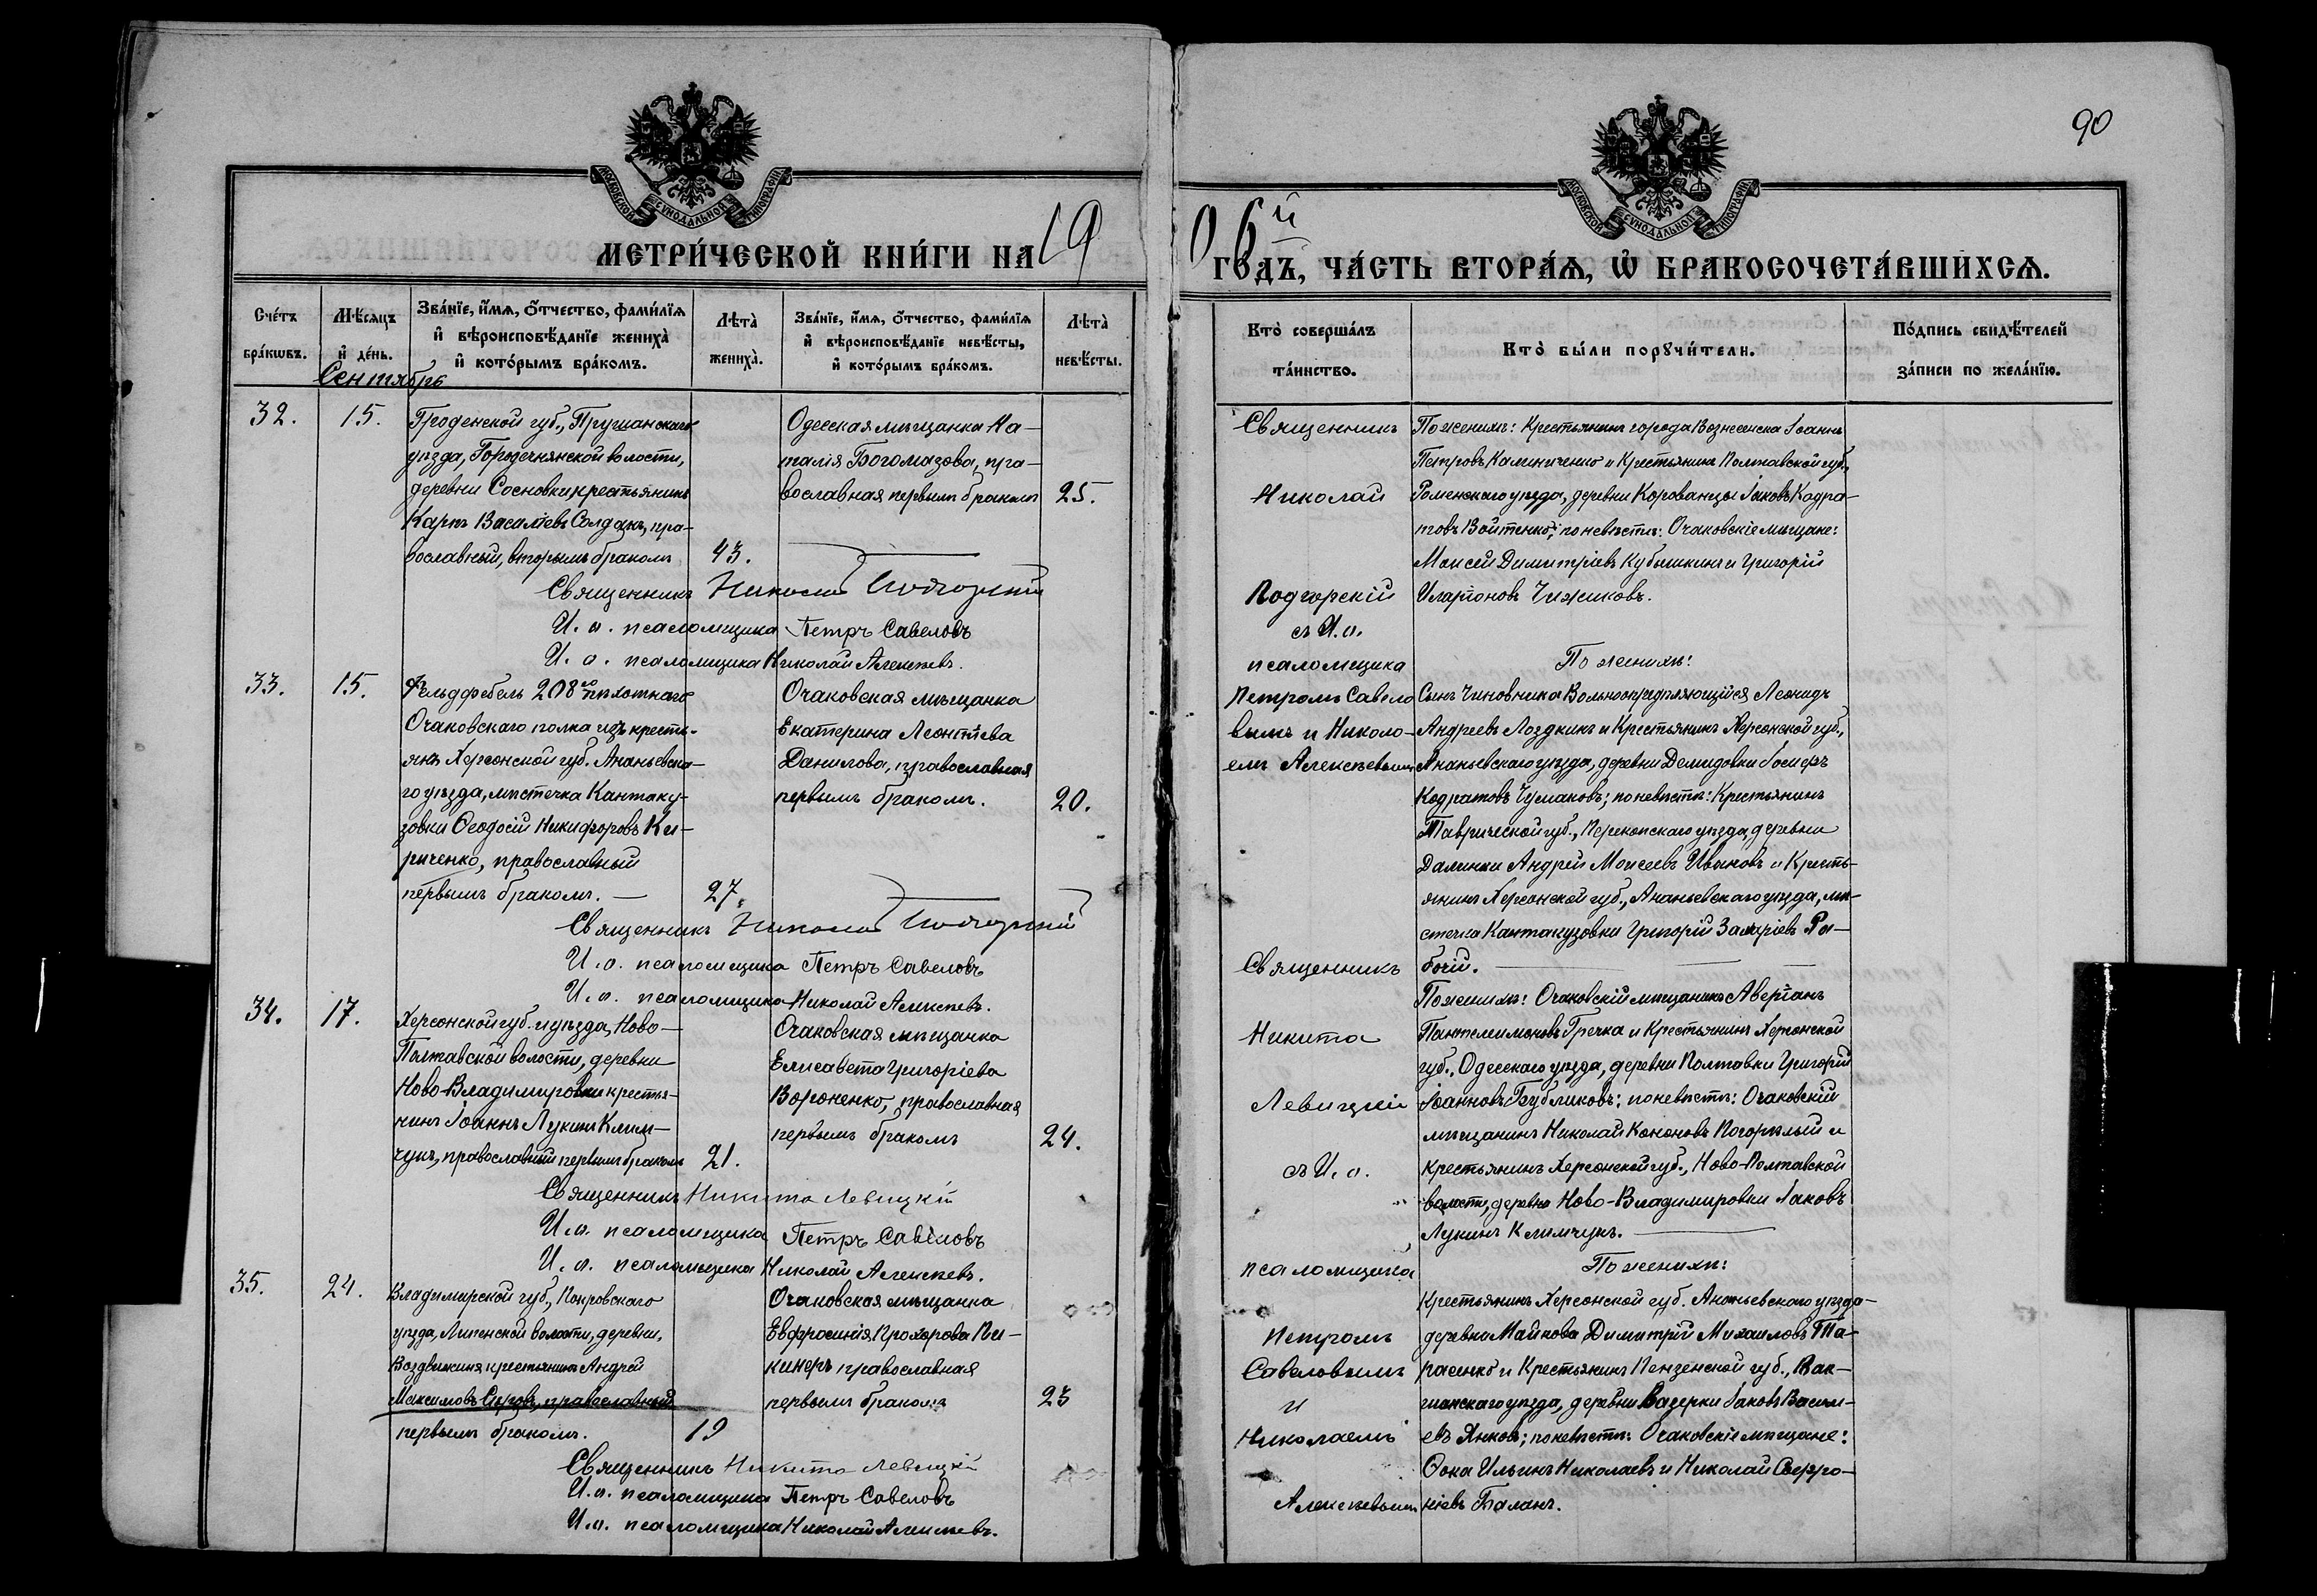 90
МОСКОВСКОЙ СѴНОДАЛЬНОЙ ТИПОГРАФІИ
МЕТРИ́ЧЕСКОЙ КНИ́ГИ НА 19
Сче́тъ бра́кωвъ.
Мѣ́сѧцъ и҆ де́нь.
Зва́нїе, и҆́мѧ, ѻ҆́тчество, фами́лїѧ
и҆ вѣроисповѣ́данїе женихà
и҆ кото́рымъ бра́комъ.
Лѣтà женихà.
Зва́нїе, и҆́мѧ, ѻ҆́тчество, фами́лїѧ
и҆ вѣроисповѣ́данїе невѣ́сты,
и҆ кото́рымъ бра́комъ.
Лѣтà невѣ́сты.
Сентябрь
32.
15.
Гроденской губ., Пружанскаго
уѣзда, Городечнянской волости,
деревни Сосновки крестьянинъ
Карпъ Васаліевъ Солданъ, пра-
вославный, вторымъ бракомъ
43.
Одесская мѣщанка На-
талія Богомазова, пра-
вославная первымъ бракомъ
25.
Священникъ Николай Подгорскій
И. о. псаломщика Петръ Савеловъ
И. о. псаломщика Николай Алексѣевъ.
33.
15.
Фельдфебель 208го пѣхотнаго
Очаковскаго полка изъ кресть-
янъ Херсонской губ. Ананьевска-
го уѣзда, мѣстечка Кантаку-
зовки Ѳеодосій Никифоровъ Ки-
риченко, православный
первымъ бракомъ. —
27.
Очаковская мѣщанка
Екатерина Леонтіева
Данилова, православная
первымъ бракомъ.
20.
Священникъ Николай Подгорскій
И. о. псаломщика Петръ Савеловъ
И. о. псаломщика Николай Алексѣевъ.
34.
17.
Херсонской губ. и уѣзда, Ново-
Полтавской волости, деревни
Ново-Владимировки крестья-
нинъ Іоаннъ Лукинъ Клим-
чукъ, православный первымъ бракомъ
21.
Очаковская мѣщанка
Елисавета Григоріева
Вороненко, православная
первымъ бракомъ
24.
Священникъ Никита Левицкій
И. о. псаломщика Петръ Савеловъ
И. о. псаломщика Николай Алексѣевъ.
35.
24.
Владимирской губ., Покровскаго
уѣзда, Липенской волости, деревни,
Воздвиженя крестьянинъ Андрей
Максимовъ православный
первымъ бракомъ.
19
Очаковская мѣщанка
Евфросинія Прохорова Пи-
кинеръ православная
первымъ бракомъ
23
Священникъ Никита Левицкій
И. о. псаломщика Петръ Савеловъ
И. о. псаломщика Николай Алексѣевъ.
МОСКОВСКОЙ СѴНОДАЛЬНОЙ ТИПОГРАФІИ
06й ГО́ДЪ, ЧА́СТЬ ВТОРА́Ѧ, Ѽ БРАКОСОЧЕТА́ВШИХСѦ.
Кто̀ соверша́лъ та́инство.
Кто̀ бы́ли порꙋчи́тели.
По́дпись свидѣ́телей за́писи по жела́нїю.
Священникъ
Николай
Подгорскій
съ И. о.
псаломщика
Петромъ Савело
вымъ и Никола-
емъ Алексѣевымъ
По женихѣ: Крестьянинъ города Вознесенска Іоаннъ
Петровъ Калиниченко и Крестьянинъ Полтавской губ.,
Роменскаго уѣзда, деревни Корованцы Іаковъ Кадра-
товъ Войтенко; по невѣстѣ: Очаковскіе мѣщане:
Моисей Димитріевъ Кубышкинъ и Григорій
Иларіоновъ Чижиковъ.
По женихѣ:
Сынъ Чиновника Вольноопредѣляющійся Леонидъ
Андреевъ Лоздкинъ и Крестьянинъ Херсонской губ.,
Ананьевскаго уѣзда, деревни Демидовки Іосифъ
Кодратовъ Чумаковъ; по невѣстѣ: Крестьянинъ
Таврической губ., Перекопскаго уѣзда, деревни
Далинки Андрей Моисеевъ Ивановъ и Кресть-
янинъ Херсонской губ., Ананьевскаго уѣзда, мѣ-
стечка Кантакузовки Григорій Захаріевъ Ра-
бочій.
Священникъ
Никита
Левицкій
съ И. о.
псаломщика
Петромъ
Савеловымъ
и
Николаемъ
Алексѣевымъ
По женихѣ: Очаковскій мѣщанинъ Аверіанъ
Пантелимоновъ Гречка и Крестьянинъ Херсонской
губ., Одесскаго уѣзда, деревни Полтавки Григорій
Іоанновъ Бубликовъ; по невѣстѣ: Очаковскій
мѣщанинъ Николай Кононовъ Погорѣлый и
крестьянинъ Херсонской губ., Ново-Полтавской
волости, деревни Ново-Владимировки Іаковъ
Лукинъ Климчукъ.
По женихѣ:
Крестьянинъ Херсонской губ. Ананьевскаго уѣзда-
деревни Майнова Димитрій Михаиловъ Та-
расенко и Крестьянинъ Пензенской губ.,
уѣзда, деревни Вазерки Іаковъ Васил-
евъ Янковъ; по невѣстѣ: Очаковскіе мѣщане:
Ѳока Ильинъ Николаевъ и Николай Софро-
ніевъ Баланъ.